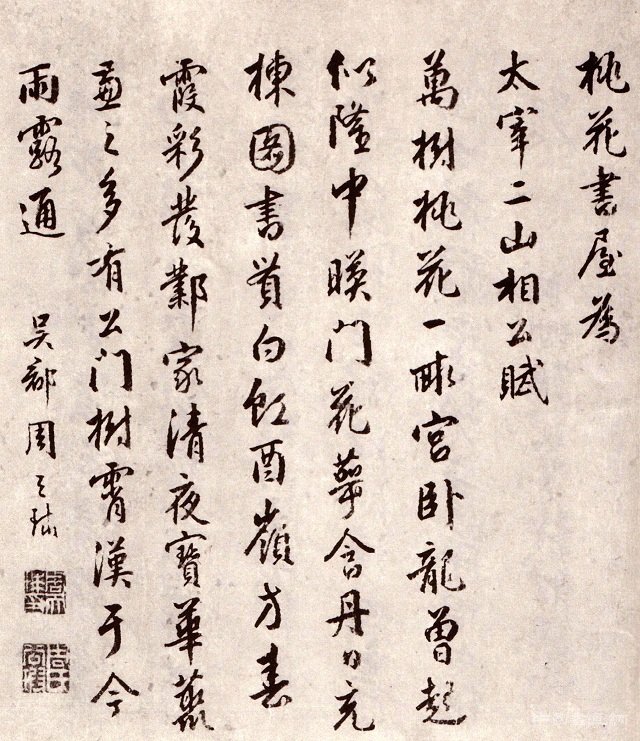 桃花書屋為
太宰二山相公賦
萬樹桃花一畝宮卧龍曾起
似隆中暎門花萼含丹日充
棟圖書貫白虹酉嶺方春
霞彩發鄴家清夜寶華叢
之多有公門樹霄漢于今
雨露通 吳郡周天球